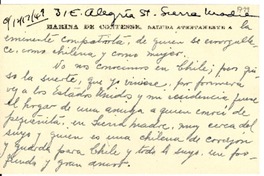 9/17/49 318. Alegría St. Sierra Madre
MARINA DE CONTESSE, SALUDA ATENTAMENTE A la
eminente compatriota, de quien se enorgulle-
ce, como chilena y como mujer.
No nos conocimos en Chile, por qui-
so la suerte, que yo viviese, por
a los Estados Unidos y mi residencia fuese
el hogar de una amiga a quien conocí de
pequeñita, en Sierra madre, muy cerca del
suyo y quien es una chilena de corazón
y guarda para Chile y todo lo suyo, un pro-
fundo y gran amor.